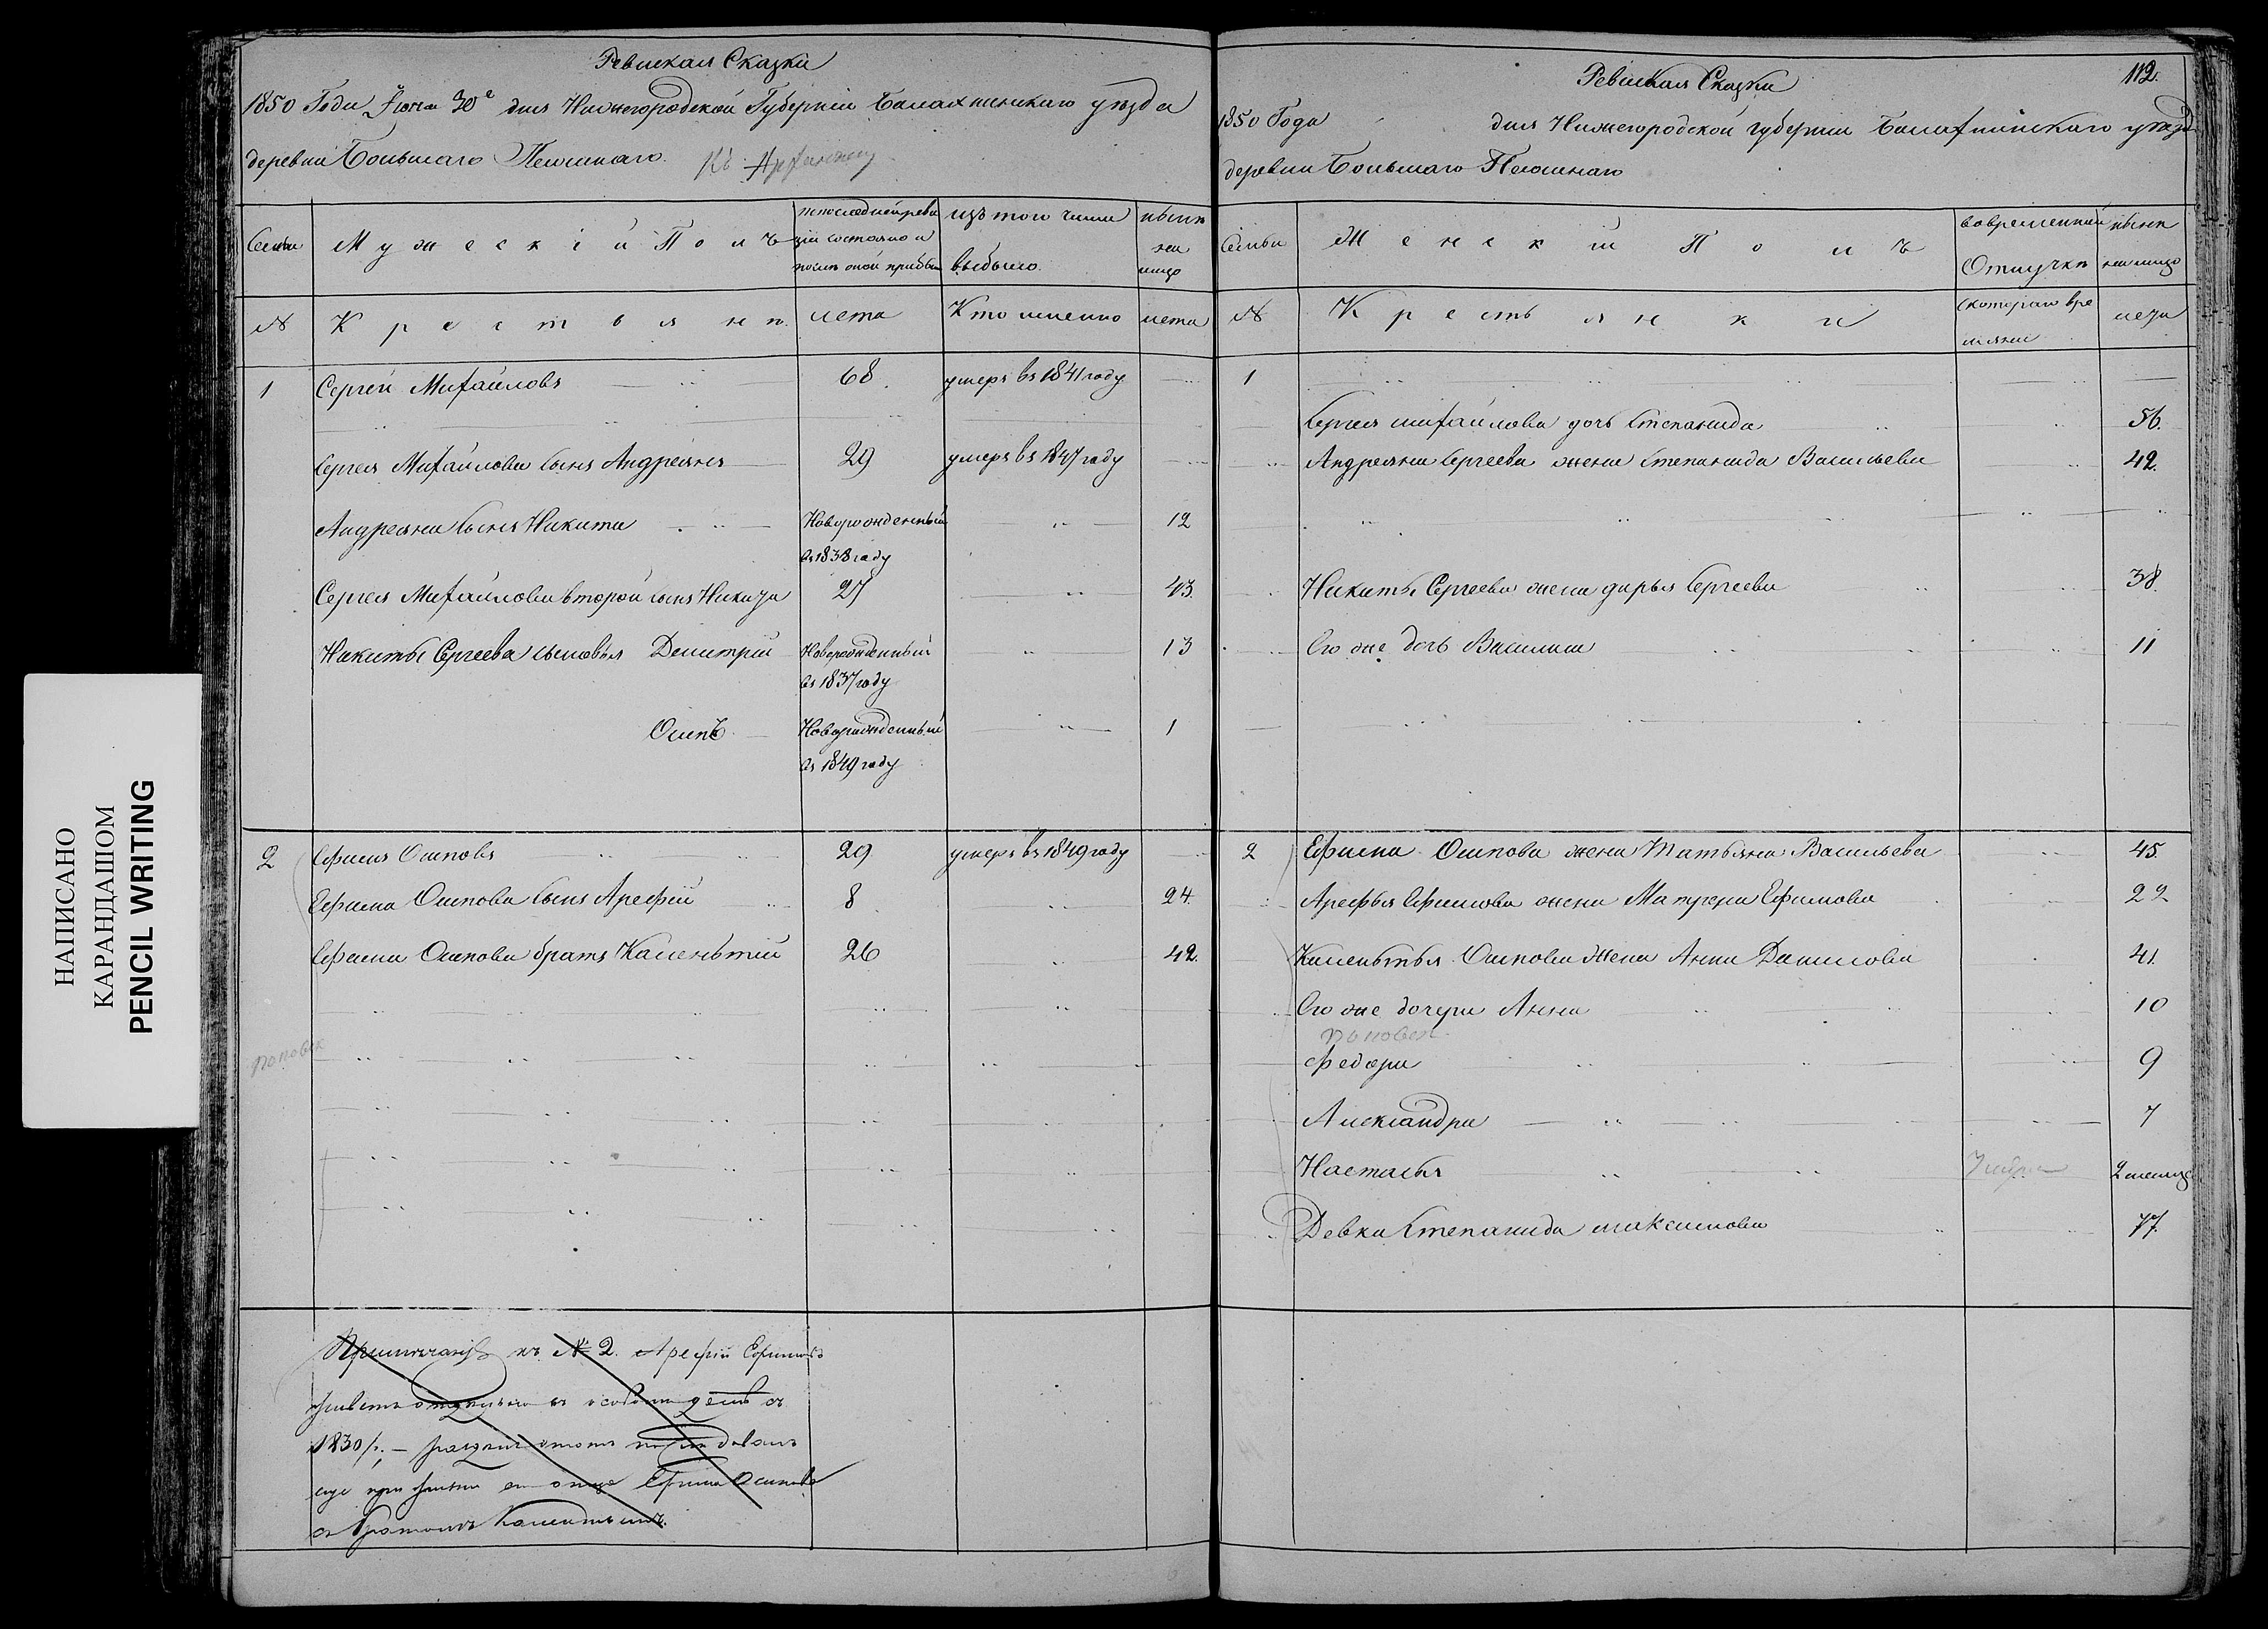 НАПИСАНО
КАРАНДАШОМ
PENCIL WRITING
Ревизкая Сказка
1850 Года Іюня 30е дня Нижегородской Губерніи Балахнинскаго уѣзда
деревни Большаго Пешшнаго. Къ
Семьи
Мужескій Полъ
по последней реви
зіи состояло и
после оной прибыло
изъ того числа
выбыло
нынѣ
на
лицо
№
Крестьянѣ
лета
Кто именно
лета
1 Сергей Михайловъ 68. умеръ въ 1841 году
Сергея Михайлова сынъ Андреянъ 29 умеръ въ 1847 году
Андреяна сынъ Никита Новорожденный 12
въ 1838 году
Сергея Михайлова второй сынъ Никита 27 43.
Никиты Сергеева сыновья Дмитрій Новорожденный 13
въ 1837 году
Осипъ Новорожденный 1
въ 1849 году
2 Ефимъ Осиповъ 29 умеръ въ 1849 году
Ефима Осипова сынъ Арефій 8 24.
Ефима Осипова братъ Калентій 26 42.
Примѣчаніе къ № 2. Арефій Ефимовъ
живетъ отдельно въ особомъ домѣ съ
1830 г. – раздѣлъ этотъ
еще при жизни его отца Ефима Осипова
съ братомъ Калентьемъ.
112.
Ревизкая Сказка
1850 Года дня Нижегородской губерніи Балахнинскаго уѣзда
деревни Большаго Пешшнаго
Семьи
Женскій Полъ
во временной
Отлучкѣ
нынѣ
на лицо
№
Крестьянки
с котораго вре
мяни
лета
1
Сергея михайлова дочь Степанида 56.
Андреяна Сергеева жена Степанида Васильева 42.
Никиты Сергеева жена дарья Сергеева 38.
Его же дочь Василиса 11
2 Ефима Осипова жена Татьяна Васильева 45.
Арефья Ефимова жена Матрена Ефимова 22
Калентья Осипова жена Анна Данилова 41.
Его же дочери Анна 10
Федора 9
Александра 7
Настасья 2 месяца
Девка Степанида максимова 77.